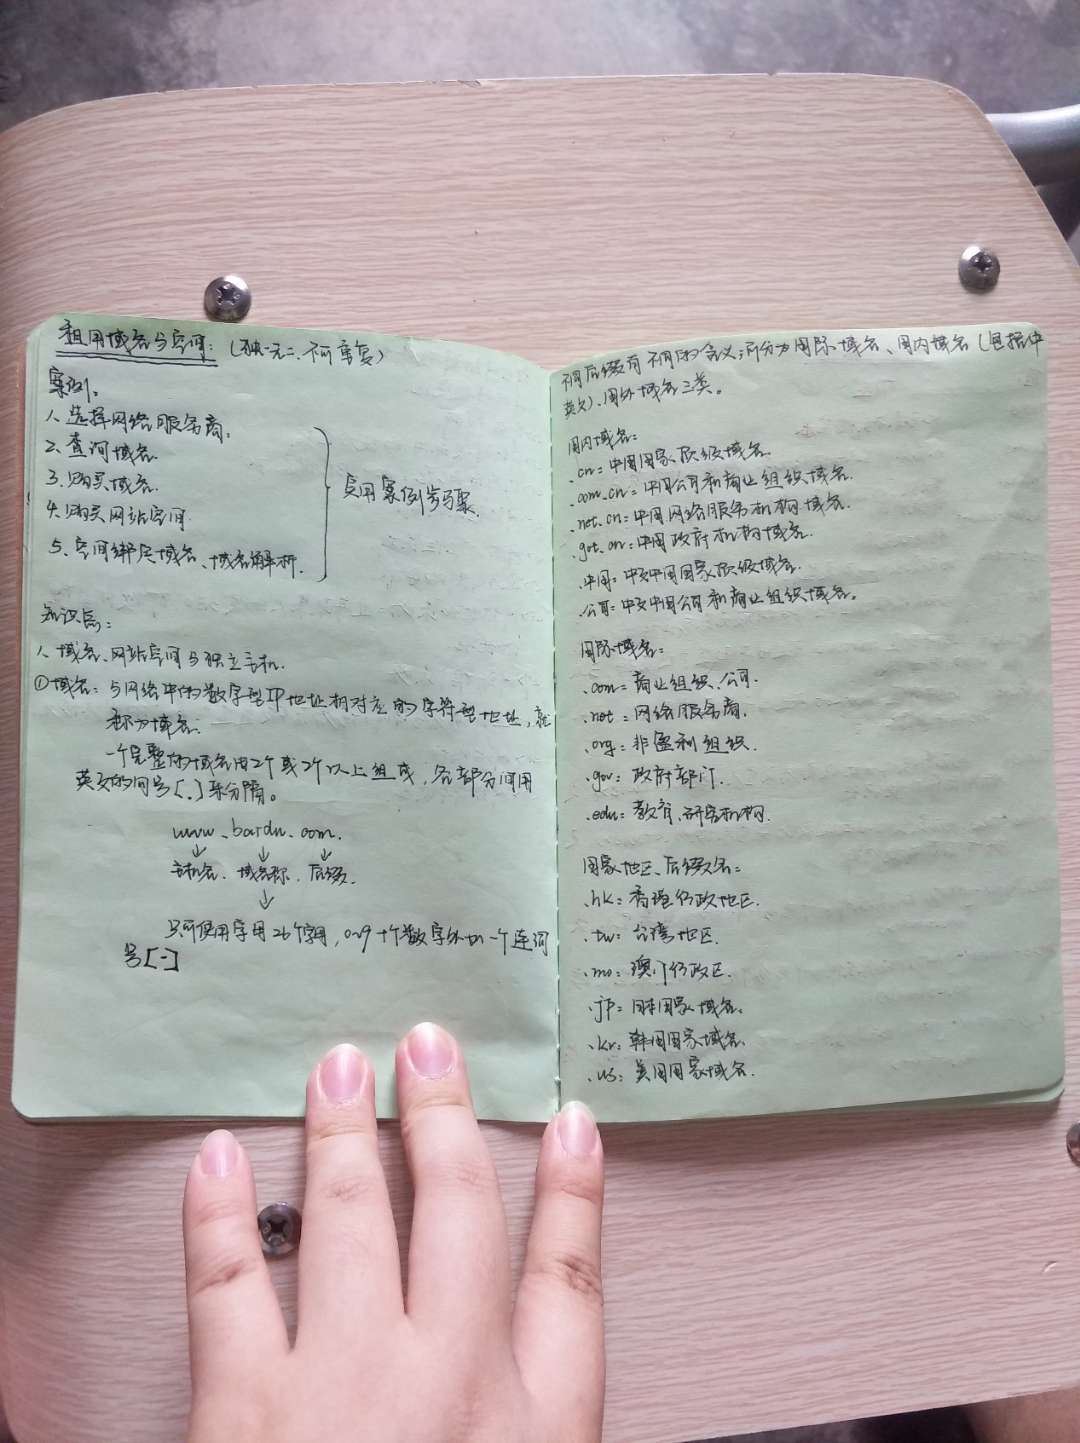 租用域名与空间：（独一无二、不可重复）
案例。
1、选择网络服务商。
2、查询域名.
3、购买域名.
4、购买网站空间.
5、空间绑定域名、域名解析.
实用案例步骤.
知识点：
1、域名、网站空间与独立主机.
①域名：与网络中的数字型IP地址相对应的字符型地址，就
称为域名.
一个完整的域名由2个或2个以上组成，各部分间用
英文的句号[.]来分隔。
www、baidu、com.
↓ ↓ ↓
主机名. 域名称. 后缀.
↓
只可使用字母26个字母，0~9十个数字外加一个连词
号[-]
不同后缀有不同的含义：可分为国际域名、国内域名（包括中
英文）、国外域名三类。
国内域名：
.cn：中国国家顶级域名.
.com.cn：中国公司和商业组织域名.
.net.cn：中国网络服务机构域名.
.got.cn：中国政府机构域名.
.中国：中文中国国家顶级域名.
.公司：中文中国公司和商业组织域名。
国际域名：
.com：商业组织、公司.
.net：网络服务商.
.org：非盈利组织.
.gov：政府部门.
.edu：教育、研究机构.
国家地区、后缀名：
.hk：香港行政地区.
.tw：台湾地区.
.mo：澳门行政区.
.jp：日本国家域名.
.kr：韩国国家域名.
.us：美国国家域名.